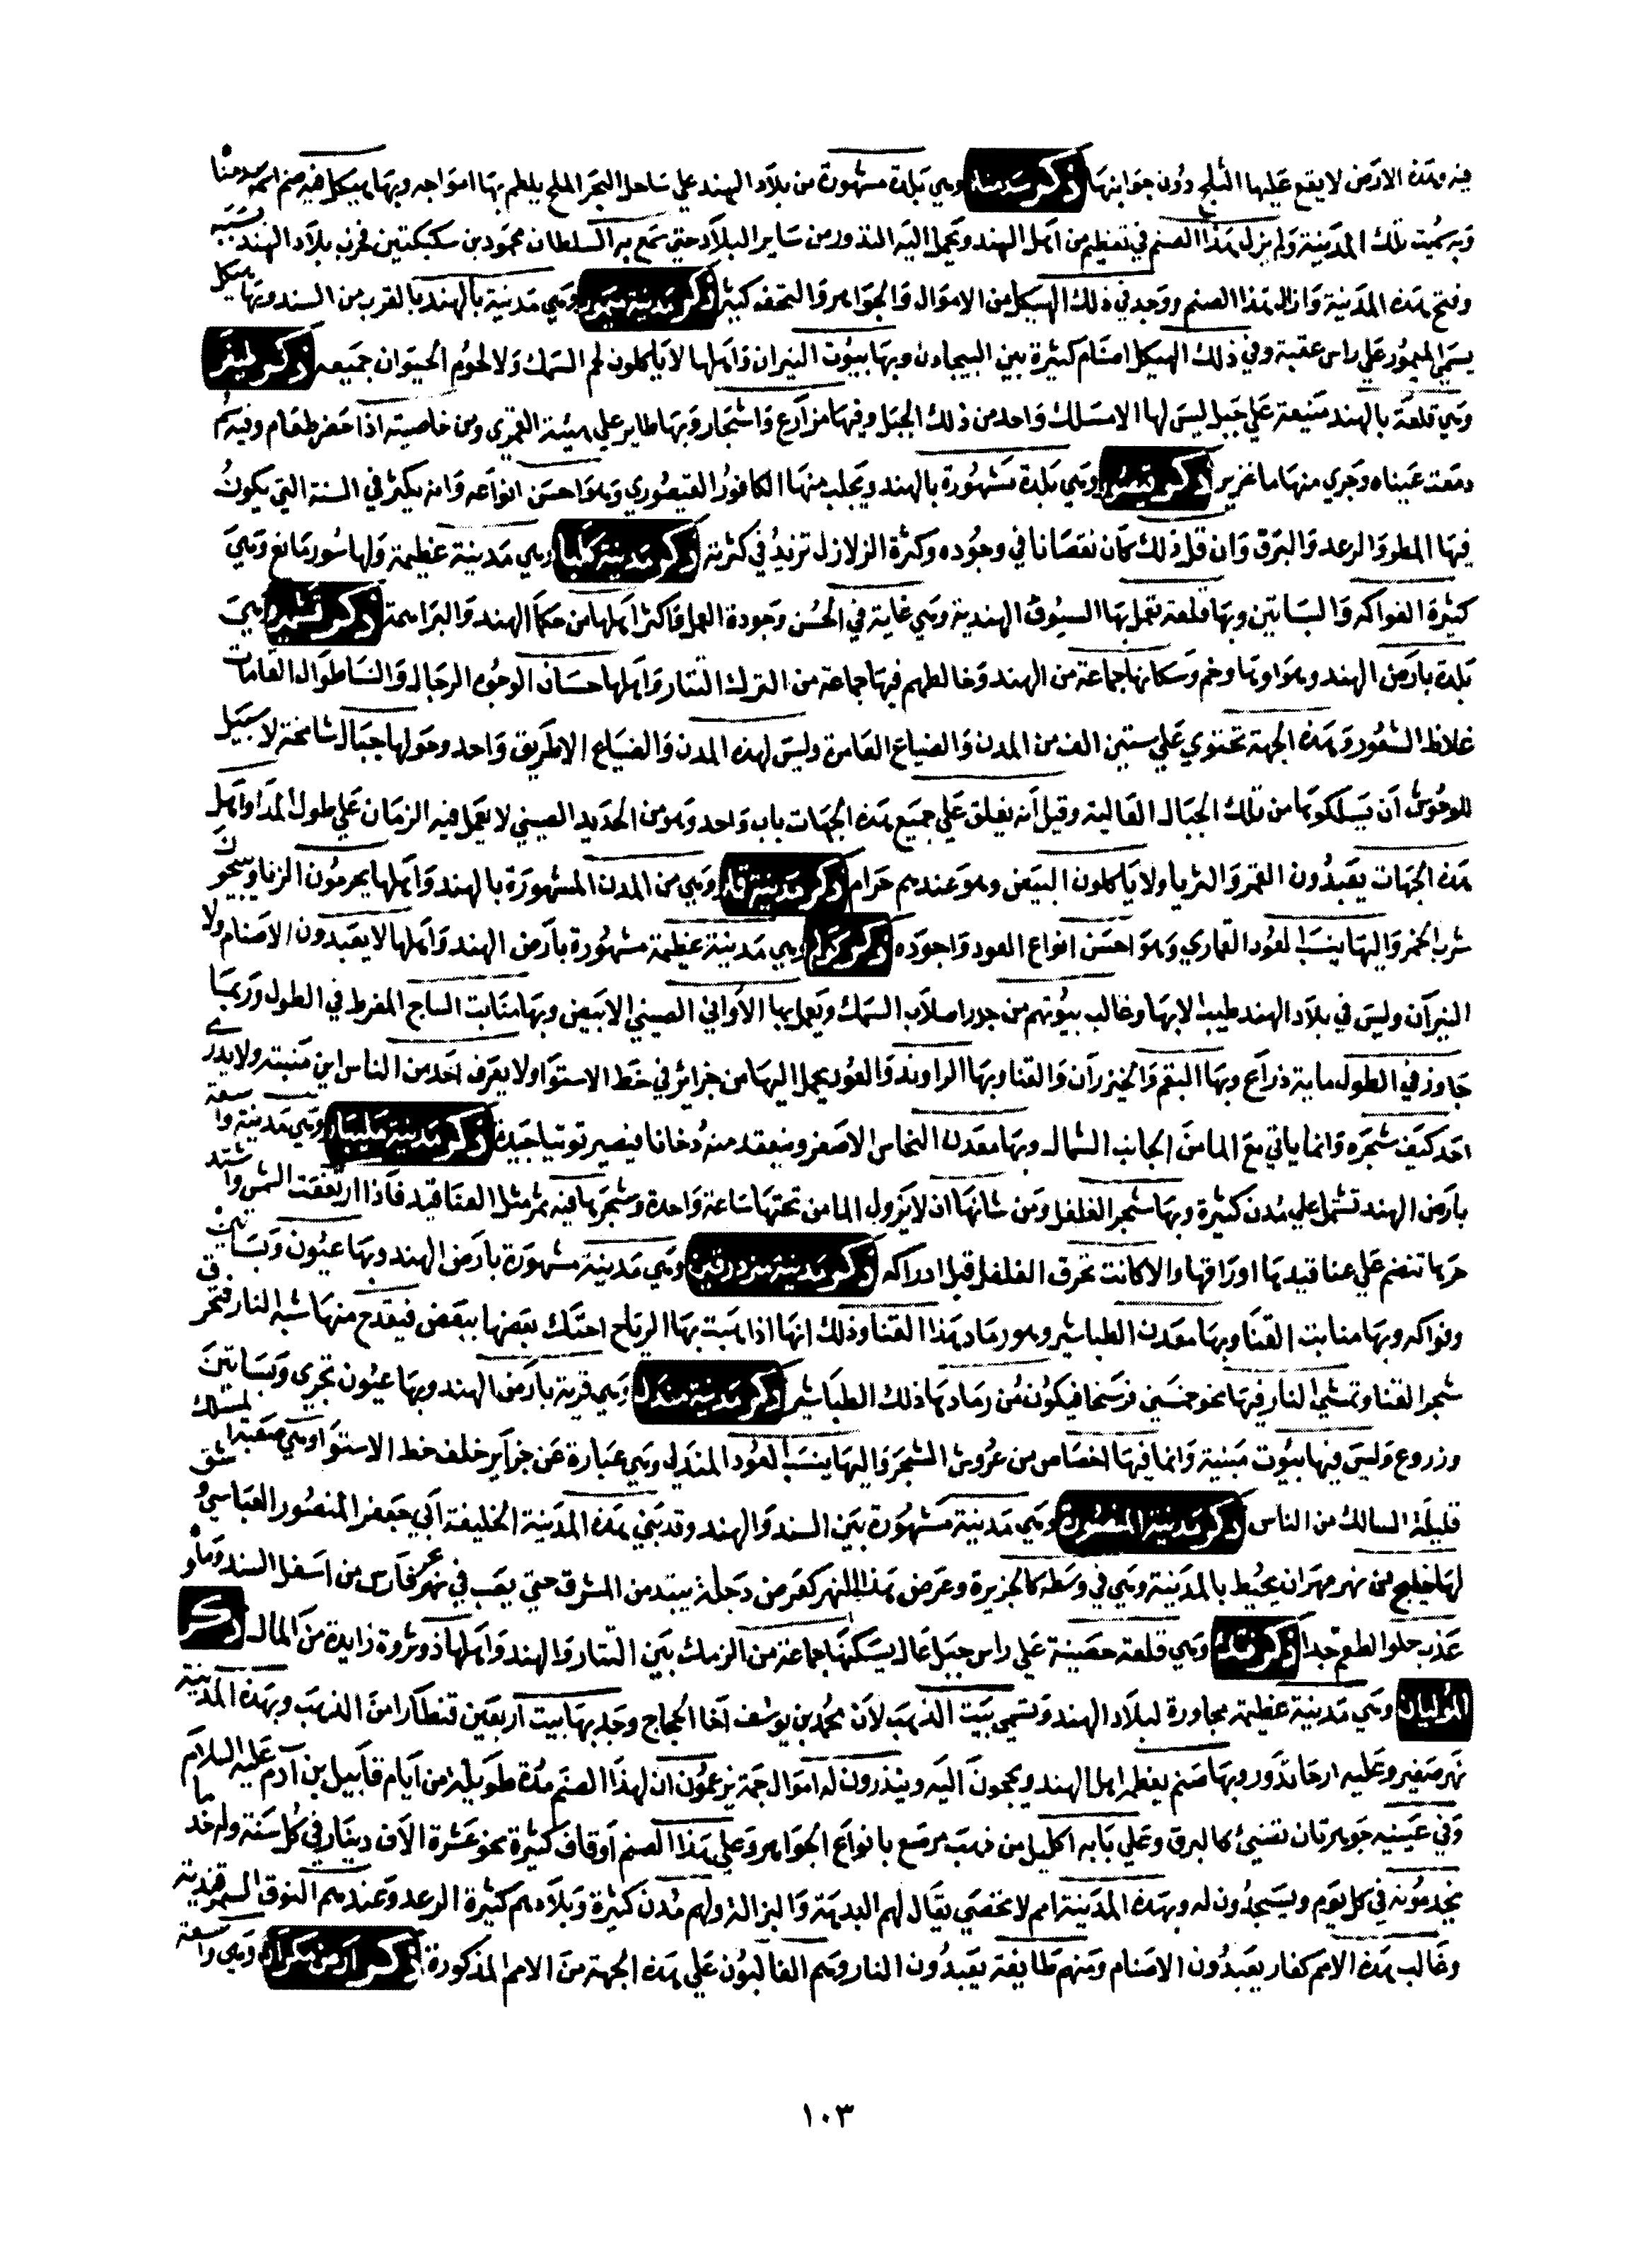 فيه وهذه الارض لا يقع عليها الثلج دون جوانبها ذكر سدمنا وهي بلدة مشهورة من بلاد الهند علي ساحل البحر الملح يلطم بها امواجه وبها هيكل فيه صنم اسمه سدمنا
وبه سميت تلك المدينة ولم يزل هذا الصنم في تعظيم من اهل الهند وتحمل اليه النذور من ساير البلاد حتي سمع به السلطان محمود بن سكبكتين فخرب بلاد الهند بسببه
وفتح هذه المدينة وازال هذا الصنم ووجد في ذلك الهيكل من الاموال والجواهر والتحف كثير ذكر مدينة وهي مدينة بالهند بالقرب من السند وبها هيكل
يسمي علي راس عقبة وفي ذلك الهيكل اصنام كثيرة بين وبها بيوت النيران واهلها لا ياكلون لحم السمك ولا لحوم الحيوان جميعه ذكر
وهي قلعة بالهند منيعة علي جبل ليس لها الا مسلك واحد من ذلك الجبل وفيها مزارع واشجار وبها طاير علي هيئة القمري ومن خاصيته اذا حضر طعام وفيه سم
دمعت عيناه وجري منها ما غزير ذكر وهي بلدة مشهورة بالهند ويجلب منها الكافور القيصوري وهو احسن انواعه وانه يكثر في السنة التي يكون
فيها المطر والرعد والبرق وان قل ذلك كان نقصانا في وجوده وكثرة الزلازل تزيد في كثرته ذكر مدينة وهي مدينة عظيمة ولها سور مانع وهي
كثيرة الفواكه والبساتين وبها قلعة تعمل بها السيوف الهندية وهي غاية في الحسن وجودة العمل واكثر اهلها من حكما الهند والبراهمة ذكر وهي
بلدة بارض الهند وهواوها وخم وسكانها جماعة من الهند وخالطهم فيها جماعة من الترك التتار واهلها حسان الوجوه الرجال والنسا طوال القامات
غلاظ الشعور وهذه الجهة تحتوي علي ستين الف من المدن والضياع العامرة وليس لهذه المدن والضياع الا طريق واحد وحولها جبال شامخة لا سبيل
للوحوش ان يسلكوها من تلك الجبال العالية وقيل انه يغلق علي جميع هذه الجهات باب واحد وهو من الحديد الصيني لا يعمل فيه الزمان علي طول المدا واهل
هذه الجهات يعبدون القمر والثريا ولا ياكلون البيض وهو عندهم حرام ذكر مدينة وهي من المدن المشهورة بالهند واهلها يحرمون الزنا ويبيحون
شرب الخمر واليها ينسب العود القماري وهو احسن انواع العود واجوده ذكر وهي مدينة عظيمة مشهورة بارض الهند واهلها لا يعبدون الاصنام ولا
النيران وليس في بلاد الهند طيب الا بها وغالب بيوتهم من جدر اصلاب السمك ويعمل بها الاواني الصيني الابيض وبها منابت الساج المفرط في الطول وربما
جاوز في الطول ماية ذراع وبها البقم والخيزران والقنا وبها الراوند والعود يحمل اليها من جزائر في خط الاستوا ولا يعرف احد من الناس اين منبته ولا يدري
احد كيف شجره وانما ياتي مع الما من الجانب الشمال وبها معدن النحاس الاصفر وينعقد منه دخانا فيصير توتيا جيدة ذكر مدينة مليبار وهي مدينة واسعة
بارض الهند تشتمل علي مدن كثيرة وبها شجر الفلفل ومن شانها ان لا يزول الما من تحتها ساعة واحدة وشجرها فيه ثمر مثل العناقيد فاذا ارتفعت الشمس واشتد
حرها تنضم علي عناقيدها اوراقها والا كانت تحرق الفلفل قبل ادراكه ذكر مدينة وهي مدينة مشهورة بارض الهند وبها عيون وبساتين
وفواكه وبها منابت القنا وبها معدن الطباشير وهو رماد هذا القنا وذلك انها اذا هبت بها الرياح احتك بعضها ببعض فيقدح منها شبه النار فتحرق
شجر القنا وتمشي النار فيها نحو خمسين فرسخا فيكون من رمادها ذلك الطباشير ذكر مدينة مندل وهي قرية بارض الهند وبها عيون تجري وبساتين
وزروع وليس فيها بيوت مبنية وانما فيها اخصاص من عروش الشجر واليها ينسب العود المندلي وهي عبارة عن جزاير خلف خط الاستوا وهي صعبة المسلك
قليلة السالك من الناس ذكر مدينة المنصورة وهي مدينة مشهورة بين السند والهند وقد بني هذه المدينة الخليفة ابي جعفر المنصور العباسي وشق
لها خليج من نهر مهران يحيط بالمدينة وهي في وسطه كالجزيرة وعرض هذا النهر كعرض دجلة يبتد من المشرق حتي يصب في بحر فارس من اسفل السند وماوه
عذب حلو الطعم جدا ذكر وهي قلعة حصينة علي راس جبل عال يسكنها جماعة من بين التتار والهند واهلها ذو ثروة زايدة من المال ذكر
المولتان وهي مدينة عظيمة مجاورة لبلاد الهند وتسمي بيت الذهب لان محمد بن يوسف اخا الحجاج وجد بها بيت اربعين قنطارا من الذهب وبهذه المدينة
نهر صغير وعليه ارحا تدور وبها صنم يعظم اهل الهند ويحجون اليه وينذرون له اموال جمة يزعمون ان لهذا الصنم مدة طويلة من ايام قابيل بن آدم عليه السلام
وفي عينيه جوهرتان تضيئ كالبرق وعلي بابه اكليل من ذهب مرصع بانواع الجواهر وعلي هذا الصنم اوقاف كثيرة نحو عشرة الاف دينار في كل سنة وله خدام
يخدمونه في كل يوم ويسجدون له وبهذه المدينة امم لا تحصي يقال لهم البدهة ولهم مدن كثيرة وبلادهم كثيرة الرعد وعندهم النوق السمرقندية
وغالب هذه الامم كفار يعبدون الاصنام ومنهم طايفة يعبدون النار وهم الغالبون علي هذه الجهة من الامم المذكورة ذكر ارض مكران وهي واسعة
١٠٣